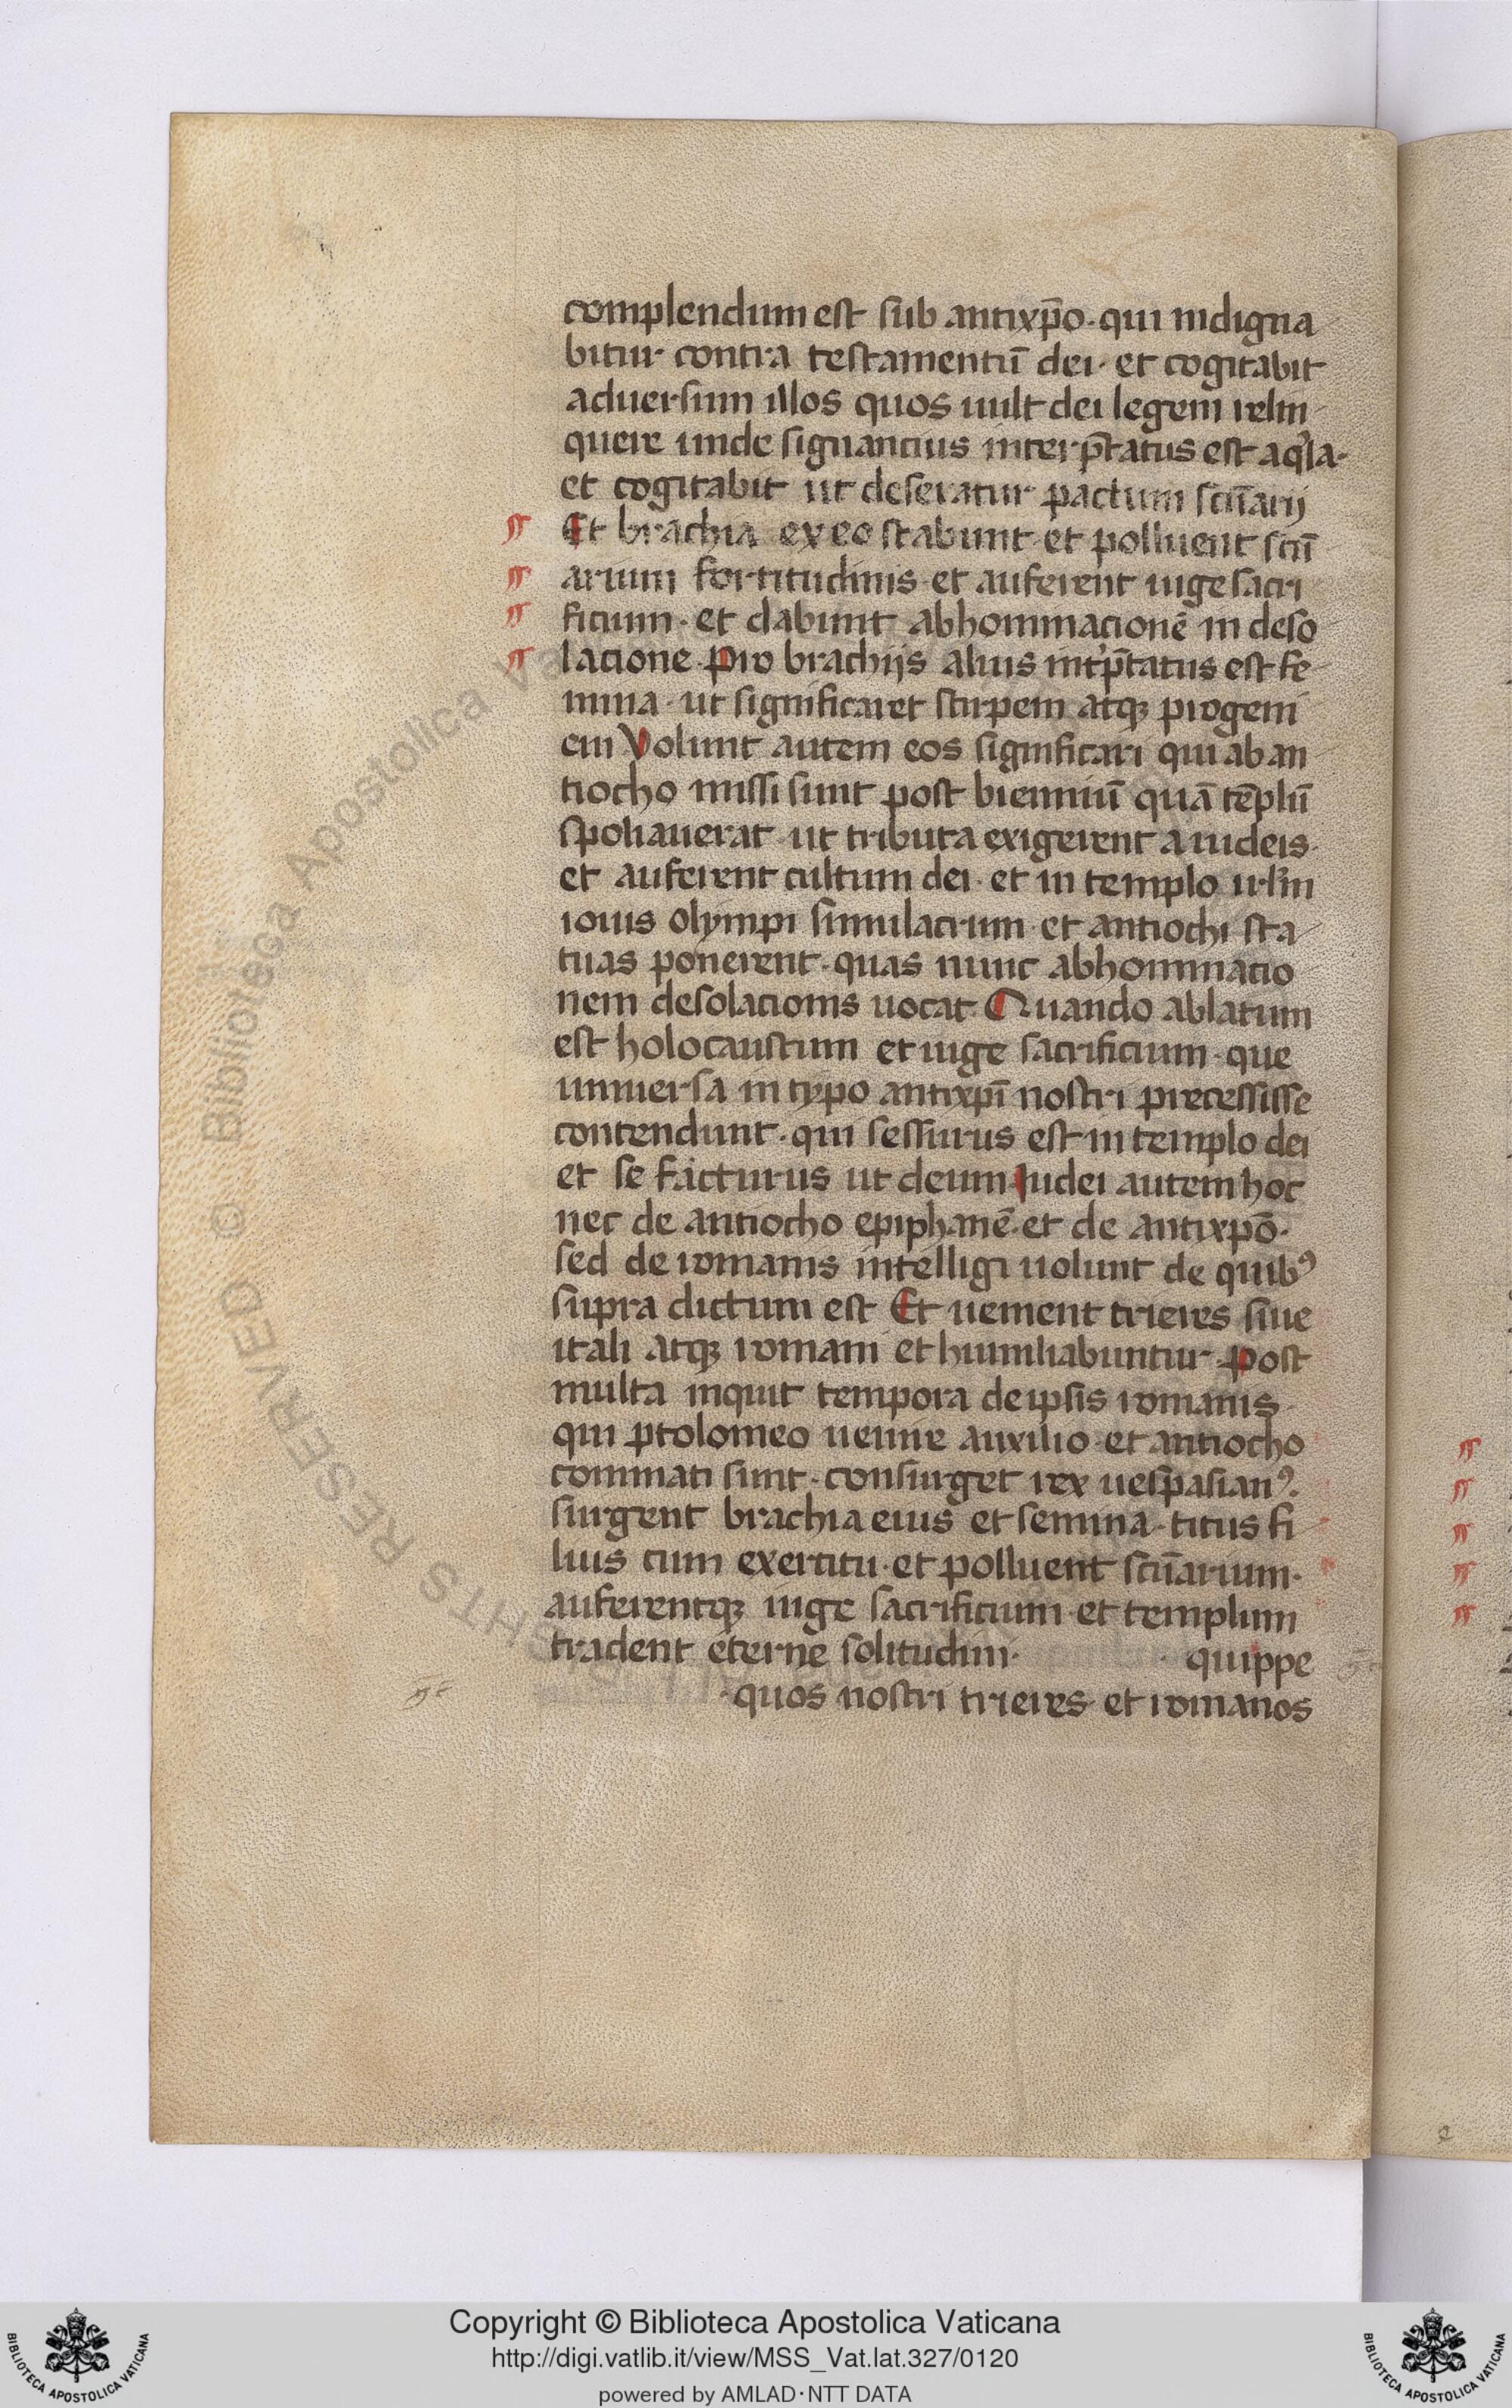 complendum est sub antixp̄o· qui indigna
bitur contra testamentū dei· et cogitabit
aduersum illos quos uult dei legem relin
quere unde signantius interp̄tatus est aq̓la·
et cogitabit ut deseratur pactum scūarij
Et brachia ex eo stabunt et polluent scū
arium fortitudinis et auferent iuge sacri
ficium· et dabunt abhominacionē in deso
lacione· Pro brachijs alius int̓p̄tatus est se
mina· ut significaret stirpem atqꝫ progeni
em Volunt autem eos significari qui ab an
tiocho missi sunt post bienniū quā tēplū
spoliauerat· ut tributa exigerent a iudeis·
et auferent cultum dei· et in templo irlm̄
iouis olympi simulacrum et antiochi sta
tuas ponerent· quas nunc abhominatio
nem desolacionis uocat· Quando ablatum
est holocaustum et iuge sacrificium· que
uniuersa in typo antixpī nostri precessisse
contendunt· qui sessurus est in templo dei
et se facturus ut deum Iudei autem hoc
nec de antiocho epiphanē· et de antixpō·
sed de romanis intelligi uolunt de quibꝰ
supra dictum est Et uenient trieres siue
itali atqꝫ romani et humiliabuntur· Post
multa inquit tempora de ipsis romanis
qui ptolomeo uenire auxilio· et antiocho
comminati sunt· consurget rex uespasianꝰ·
surgent brachia eius et semina· titus fi
lius cum exercitu· et polluent scūarium·
auferentqꝫ iuge sacrificium et templum
tradent eterne solitudini· quippe
·quos nostri trieres et romanos
Copyright © Biblioteca Apostolica Vaticana
http://digi.vatlib.it/view/MSS_Vat.lat.327/0120
powered by AMLAD·NTT DATA